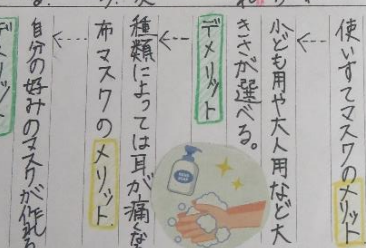 使いすてマスクのメリット
小ども用や大人用など大
きさが選べる。
デメリット
種類によっては耳が痛くな
布マスクのメリット
自分の好みのマスクが作れる
デメリット